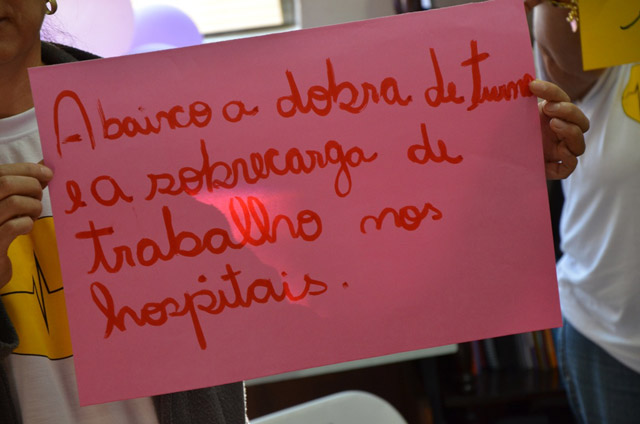 Abaixo a dobra de turno
e a sobrecarga de
traballho nos
hospitais.